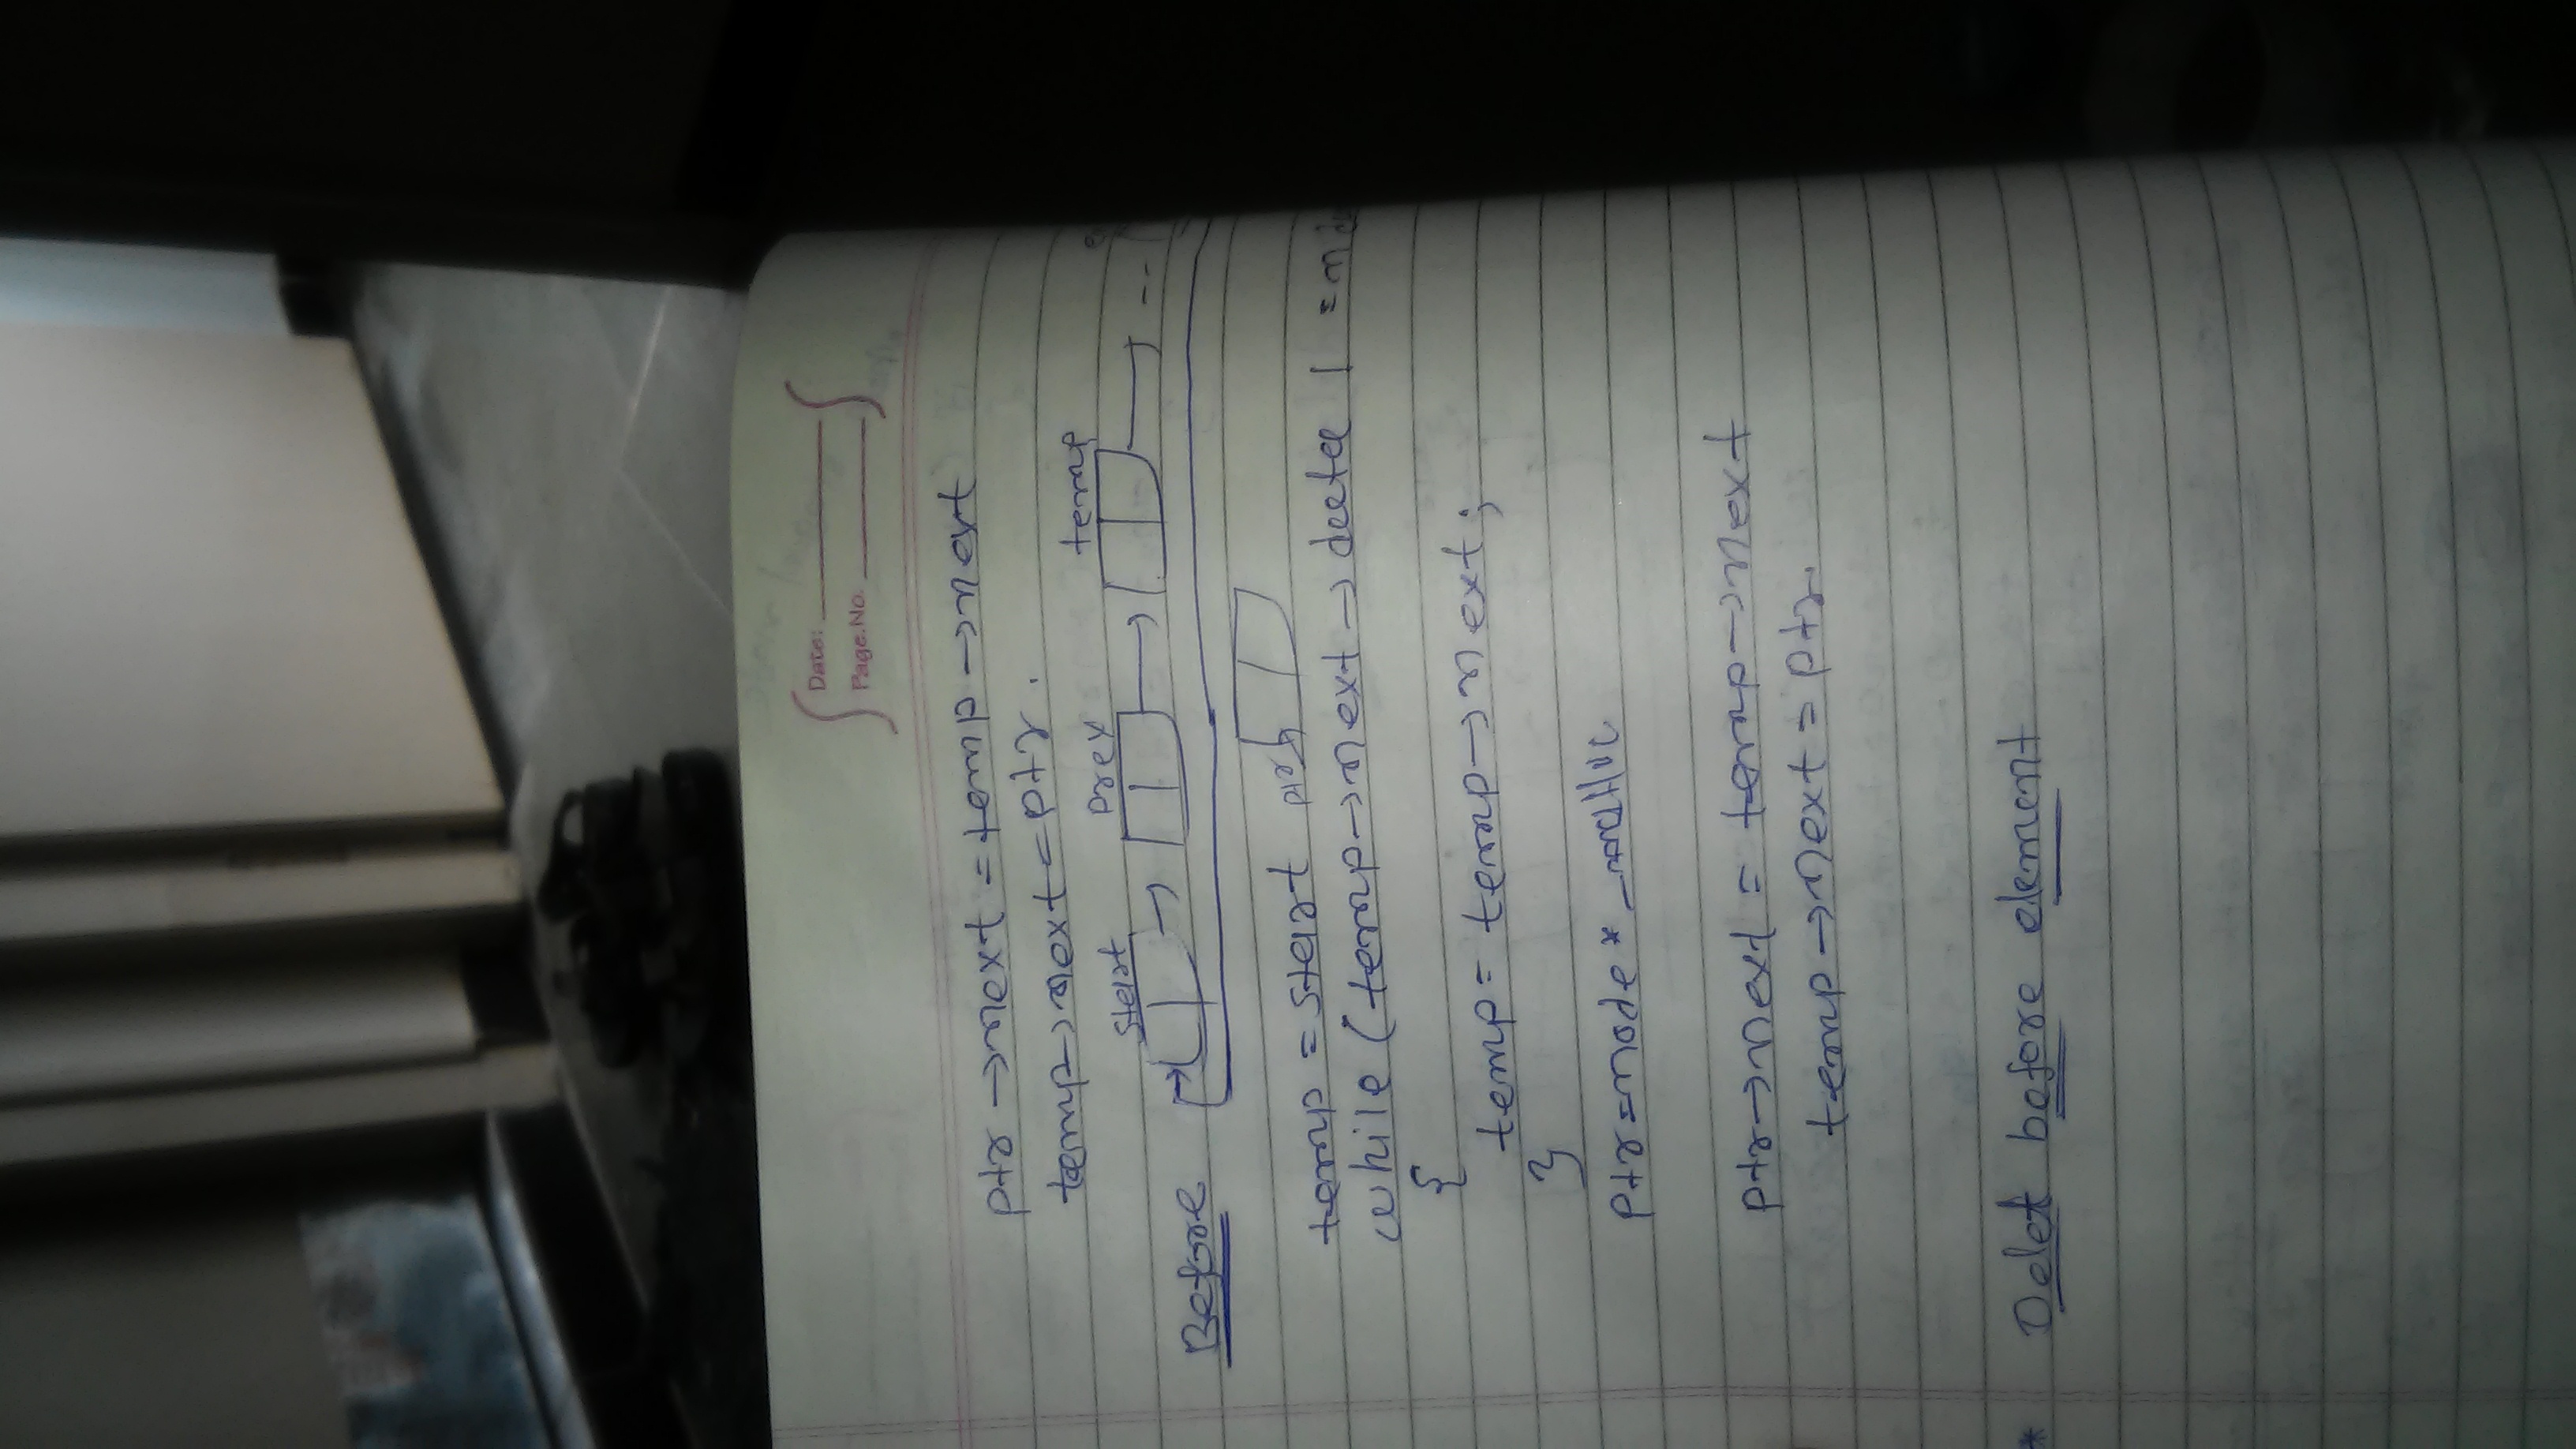 Date:
Page.No.
ptr → next = temp → next
temp → next = ptr.
start prev temp
Before
temp = start ptr
while (temp → next → data ! = n
{
temp = temp → next;
}
ptr = node * malloc
ptr → next = temp → next
temp → next = ptr.
* Delet before element